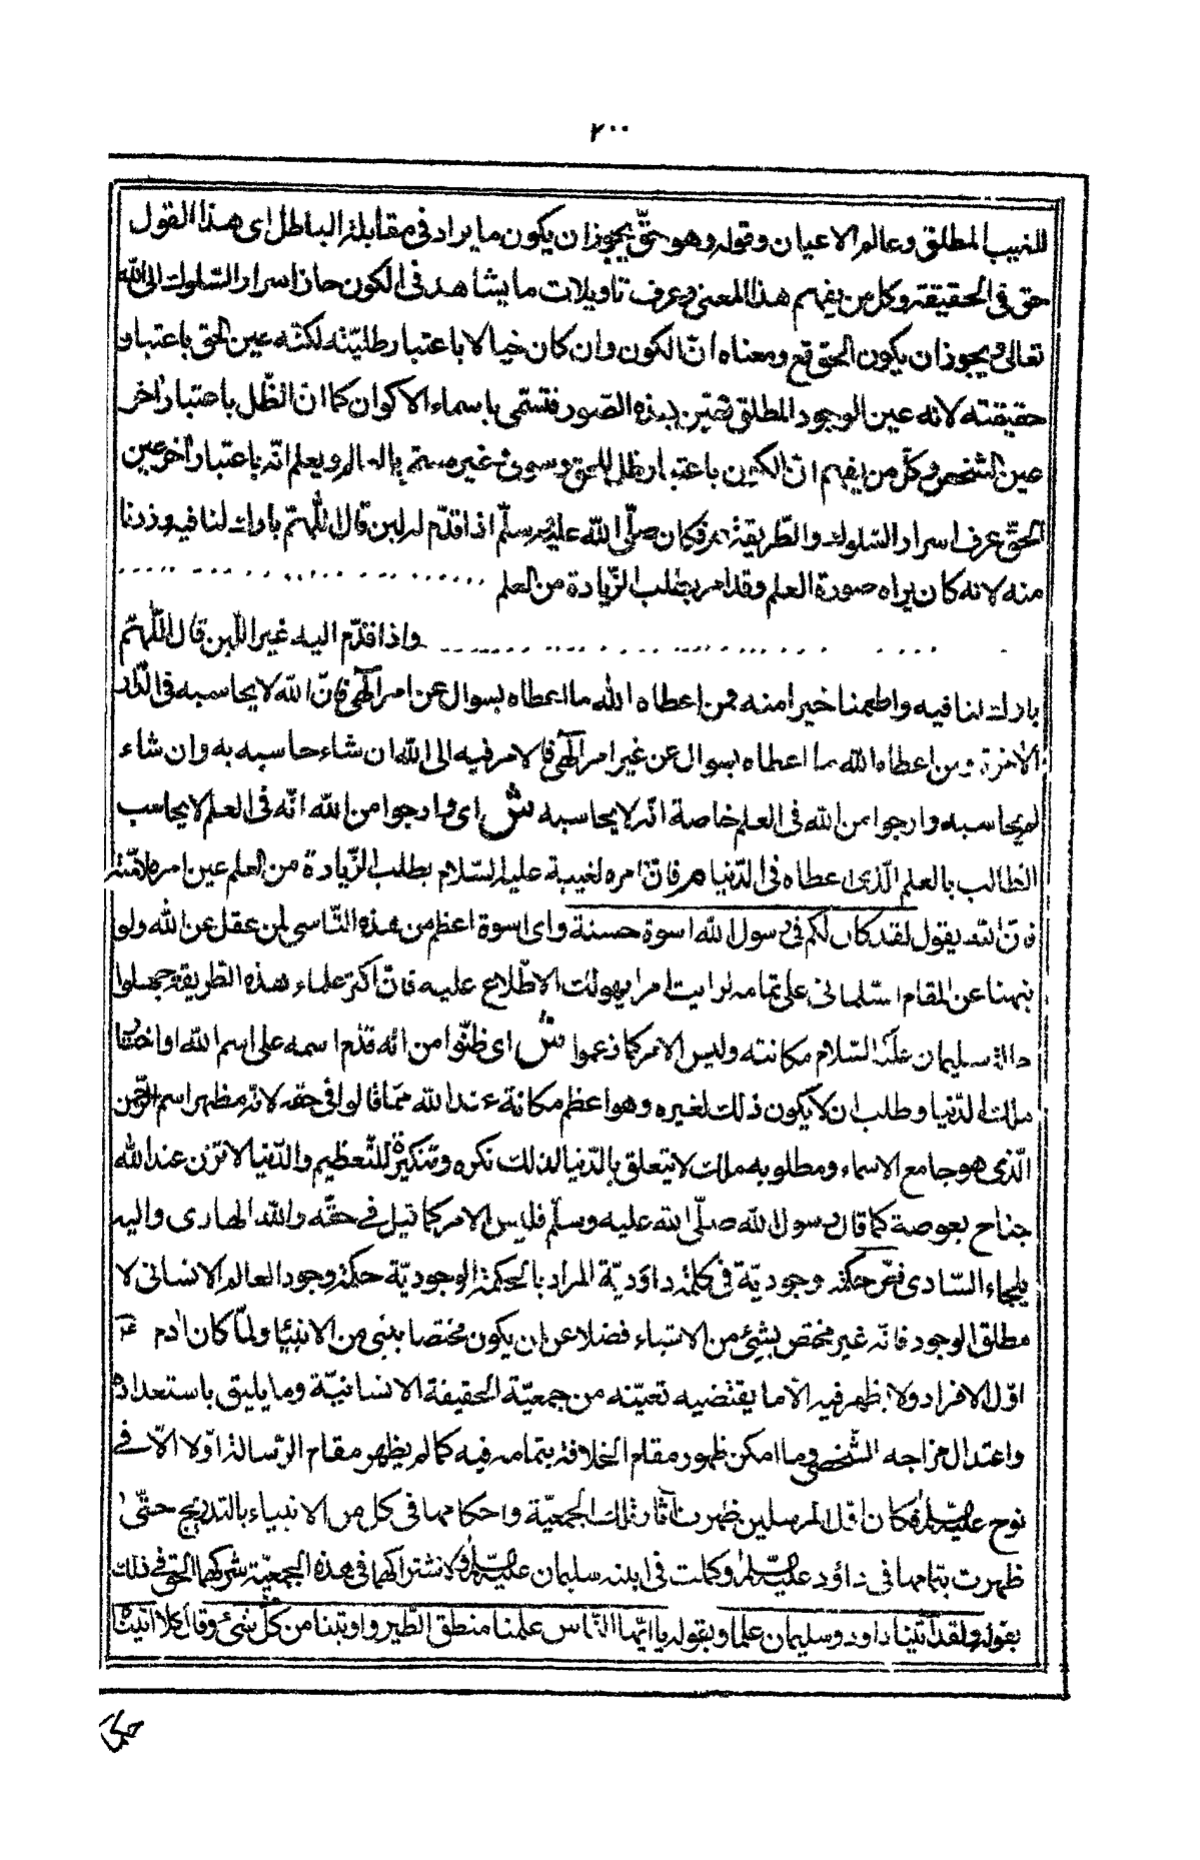 ٢٠٠
للغيب المطلق وعالم الاعيان وقوله وهو حقّ يجوز ان يكون ما يراد فى مقابلة الباطل اى هذا القول
حق فى الحقيقة وكل من يفهم هذا المعنى ويعرف تاويلات ما يشاهد فى الكون حاز اسرار السّلوك الى الله
تعالى ويجوز ان يكون الحق تع ومعناه انّ الكون وان كان خيالا باعتبار ظليّته لكنّه عين الحق باعتبار
حقيقته لانه عين الوجود المطلق تعيّن بهذه الصّور فتسمّى باسماء الاكوان كما ان الظّل باعتبار اخر
عين الشّخص وكلّ من يفهم انّ الكون باعتبار ظل للحق وسوى وغير مستمى بالعالم ويعلم انّه باعتبار اخر عين
الحقّ عرف اسرار السّلوك والطّريقة م فكان صلّى الله عليه وسلّم اذا قدّم له لبن قال اللّهمّ بارك لنا فيه وزدنا
منه لانه كان يراه صورة العلم وقد امر بطلب الزّيادة من العلم
واذا قدّم اليه غير اللّبن قال اللّهمّ
بارك لنا فيه واطعمنا خيرا منه فمن اعطاه الله ما اعطاه بسوال عن امر الٓهىّ فانّ الله لا يحاسبه فى الدّار
الآخرة ومن اعطاه الله ما اعطاه بسوال عن غير امر الٓهىّ فالامر فيه الى الله ان شاء حاسبه به وان شاء
لم يحاسبه وارجوا من الله فى العلم خاصة انّه لا يحاسبه ش اى وارجوا من الله انّه فى العلم لا يحاسب
الطّالب بالعلم الّذى اعطاه فى الدّنيا م فانّ امره لنبيه عليه السّلام بطلب الزّيادة من العلم عين امره لامّته
فانّ الله يقول لقد كان لكم فى رسول الله اسوة حسنة واى اسوة اعظم من هذه التّاسى لمن عقل عن الله ولو
نبهنا عن المقام السّلمانى على تمامه لرايت امرا يهولك الاطّلاع عليه فانّ اكثر علماء هذه الطّريقة جهلوا
حالة سليمان عليه السّلام ومكانته وليس الامر كما زعموا ش اى ظنّوا من انّه قدّم اسمه على اسم الله او اختار
ملك الدّنيا وطلب ان لا يكون ذلك لغيره وهو اعظم مكانة عند الله ممّا قالوا فى حقّه لانّه مظهر اسم الرّحمن
الّذى هو جامع الاسماء ومطلوبه ملك لا يتعلق بالدّنيا لذلك نكره وتنكيره للتّعظيم والدّنيا لا تزن عند الله
جناح بعوضة كما قال رسول الله صلّى الله عليه وسلّم فليس الامر كما قيل فى حقّه والله الهادى واليه
يلجاء السّادى فصّ حكمة وجوديّة فى كلمة داؤديّة المراد بالحكمة الوجوديّة حكمة وجود العالم الانسانى لا
مطلق الوجود فانّه غير مختص بشئ من الاشياء فضلا عن ان يكون مختصا بنبى من الانبيا ولمّا كان ادم عم
اوّل الافراد ولا يظهر فيه الّا ما يقتضيه تعيّنه من جمعيّة الحقيقة الانسانيّة وما يليق باستعداده
واعتدال مزاجه الشّخصى وما امكن ظهور مقام الخلافة بتمامه فيه كما لم يظهر مقام الرّسالة اوّلا الّا فى
نوح عليه السّلام فكان اوّل المرسلين ظهرت آثار تلك الجمعيّة واحكامها فى كل من الانبياء بالتدريج حتّى
ظهرت بتمامها فى داؤد عليه السّلام وكملت فى ابنه سليمان عليه السّلام ولاشتراكهما فى هذه الجمعيّة شركهما الحق فى ذلك
بقوله ولقد آتينا داود وسليمان علما وبقوله يا ايّها النّاس علمنا منطق الطّير واوتينا من كلّ شئ وقال كلا آتينا
حكما